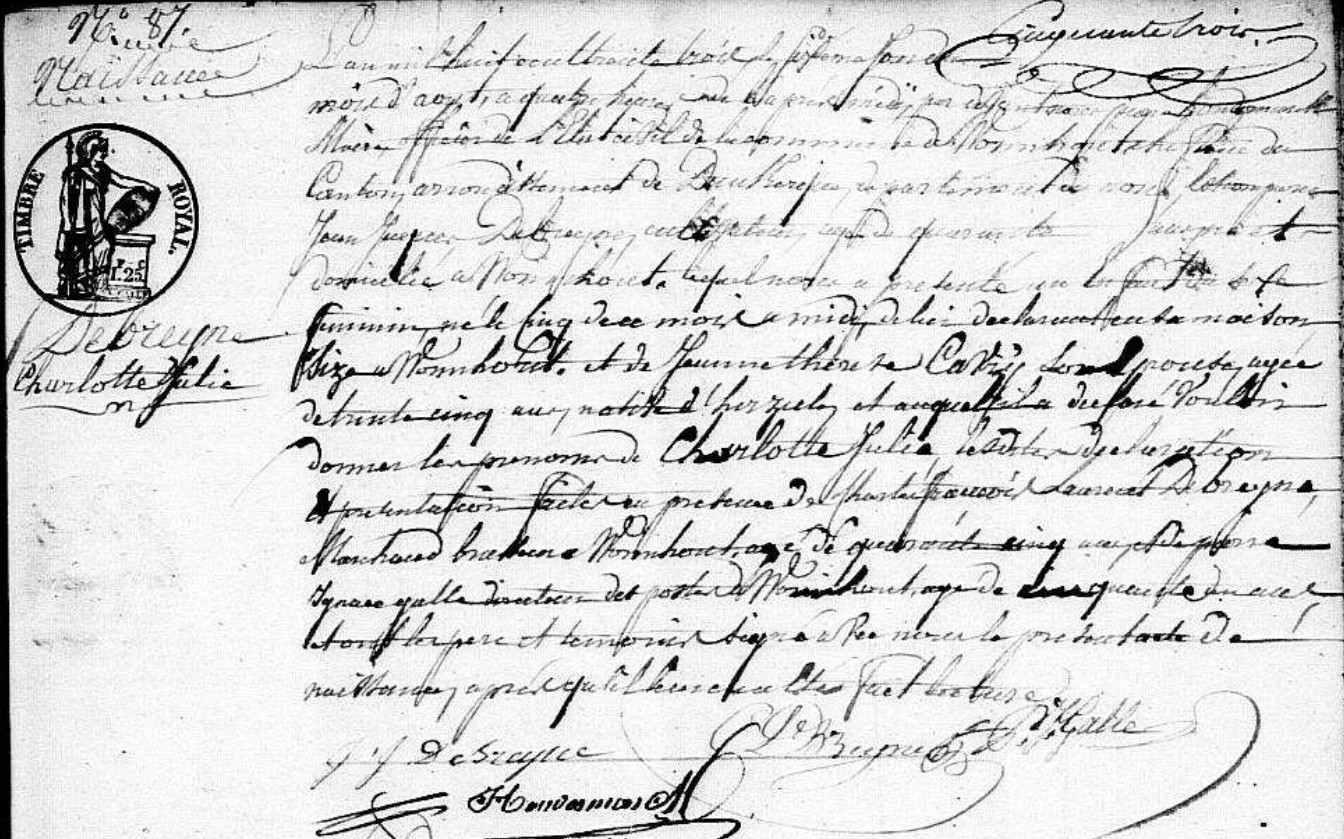 N.° 87.
Naissance
Cinquante trois.
L'an mil huit cent trente trois le sixième jour du
mois d'août, a quatre heures de apres midi, par devant nous
Maire, officier de l'Etat civil de la commune de Wormhout chef lieu du
Canton, arrondissement de Dunkerque, departement du nord, est comparu
Jean Jacques Debreyne, cultivateur, agé de quarante ans
domicilié a Wormhout, lequel nous a presenté un enfant du sexe
feminin, né le cinq de ce mois a midi, de lui declarant en sa maison
size a Wormhout. et de Jeanne therese son Epouse, agée
de trente cinq ans, native d'herzeele, et auquel il a declaré vouloir
donner les prenoms de Charlotte Julie, lesdites declaration
et presentation faites en presence de Charles françois Laurent Debreyne,
Marchand brasseur a Wormhout, agé de quarante cinq ans, et de pierre
Ignace galle directeur des postes a Wormhout, agé de cinquante un ans
et ont les pere et temoins signé avec nous le present acte de
naissance, apres qu'il leur en a été fait lecture.
TIMBRE ROYAL.
1.25
Debreyne
Charlotte Julie
J J Debreyne
Debreyne
Galle